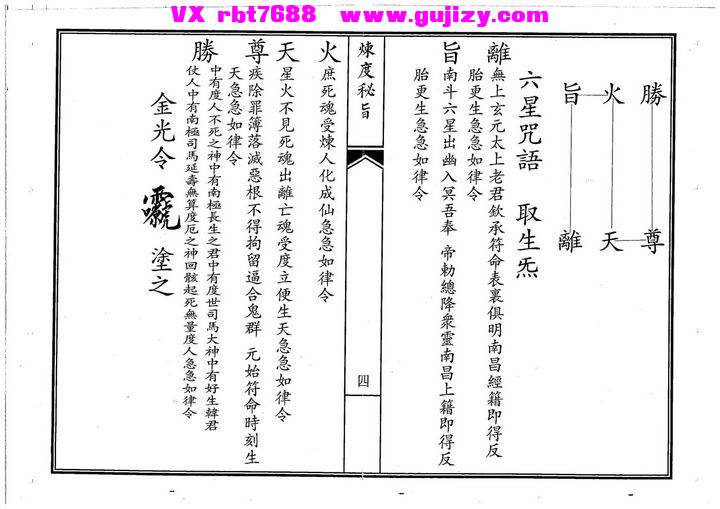 VX rbt7688 www.gujizy.com
勝 尊
火 天
旨 離
六星咒語 取生炁
離 無上玄元太上老君欽承符命表裏俱明南昌經籍即得反
胎更生急急如律令
旨 南斗六星出幽入冥吾奉 帝勅總降衆靈南昌上籍即得反
胎更生急急如律令
煉度秘旨
四
火 庶死魂受煉人化成仙急急如律令
天 星火不見死魂出離亡魂受度立便生天急急如律令
尊 疾除罪簿落滅惡根不得拘留逼合鬼群 元始符命時刻生
天急急如律令
勝 中有度人不死之神中有南極長生之君中有度世司馬大神中有好生韓君
仗人中有南極司馬延壽無算度厄之神回骸起死無量度人急急如律令
金光令 塗之